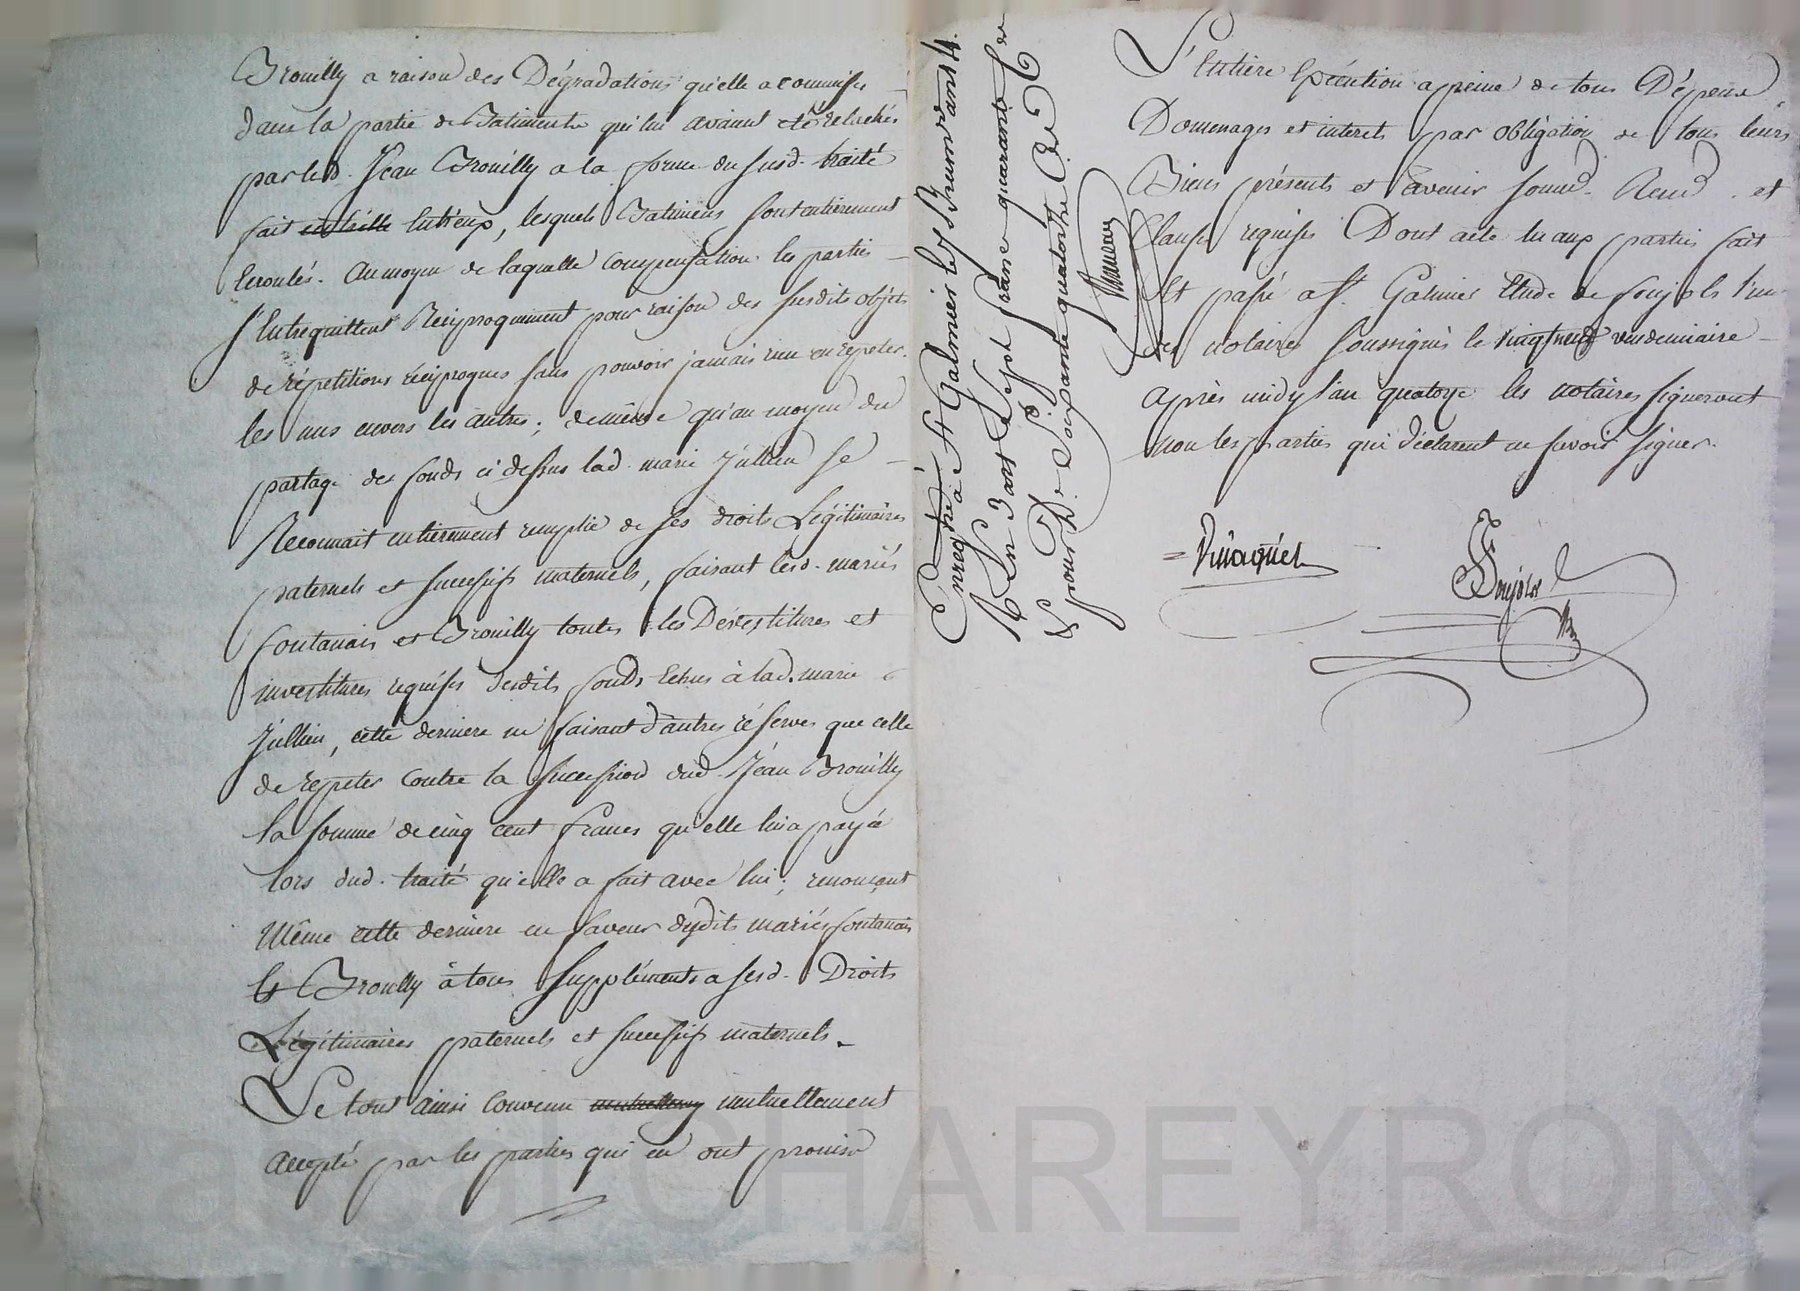 Brouilly a raison des Dégradations qu'elle a commises
dans la partie de Batiments qui lui avaient été relachés
par led. Jean Brouilly a la forme du susd. traité
fait entr'eux, lesquels Batimens sont entièrement
Ecroulés. Au moyen de laquelle compensation les parties
s'Entrequittent Réciproquement pour raison des susdits objets
de répétitions réciproques sans pouvoir jamais rien en repeter
les uns envers les autres; de même qu'au moyen du
partage des fonds ci dessus lad. marie Jullien se
Reconnait entierement remplie de ses droits Légitimaires
paternels et successifs maternels, faisant lesd. mariés
fontanais et Brouilly toutes les Dévestitures et
investitures requises desdits fonds Echus à lad. marie
Jullien, cette derniere ne faisant d'autres réserves que celle
de repeter contre la succession dud. Jean Brouilly
la somme de cinq cent francs qu'elle lui a payée
lors dud. traité qu'elle a fait avec lui; renonçant
Même cette derniere en faveur desdits mariés fontanais
et Brouilly à tous suppléments a sesd. Droits
Légitimaires paternels et successifs maternels.
Le tout ainsi convenu mutuellement
accepté par les parties qui en ont promis
Enregtré à St Galmier le 8 Brumre an 14.
Reçu dix sept francs quarante Ces
& pour De. de soixante quatorze Ces
L'Entière Exécution a peine de tous Dépens
Domenages et interets par obligation de tous leurs
Biens présents et Avenir soumd. Rend. et
Clauses requises Dont acte lu aux parties fait
Et passé a St. Galmier Etude de Soujols l'un
des notaires soussignés le vingt neuf vendemiaire
après midy l'an quatorze les notaires signeront
non les parties qui déclarent ne savoir signer.
Soujols